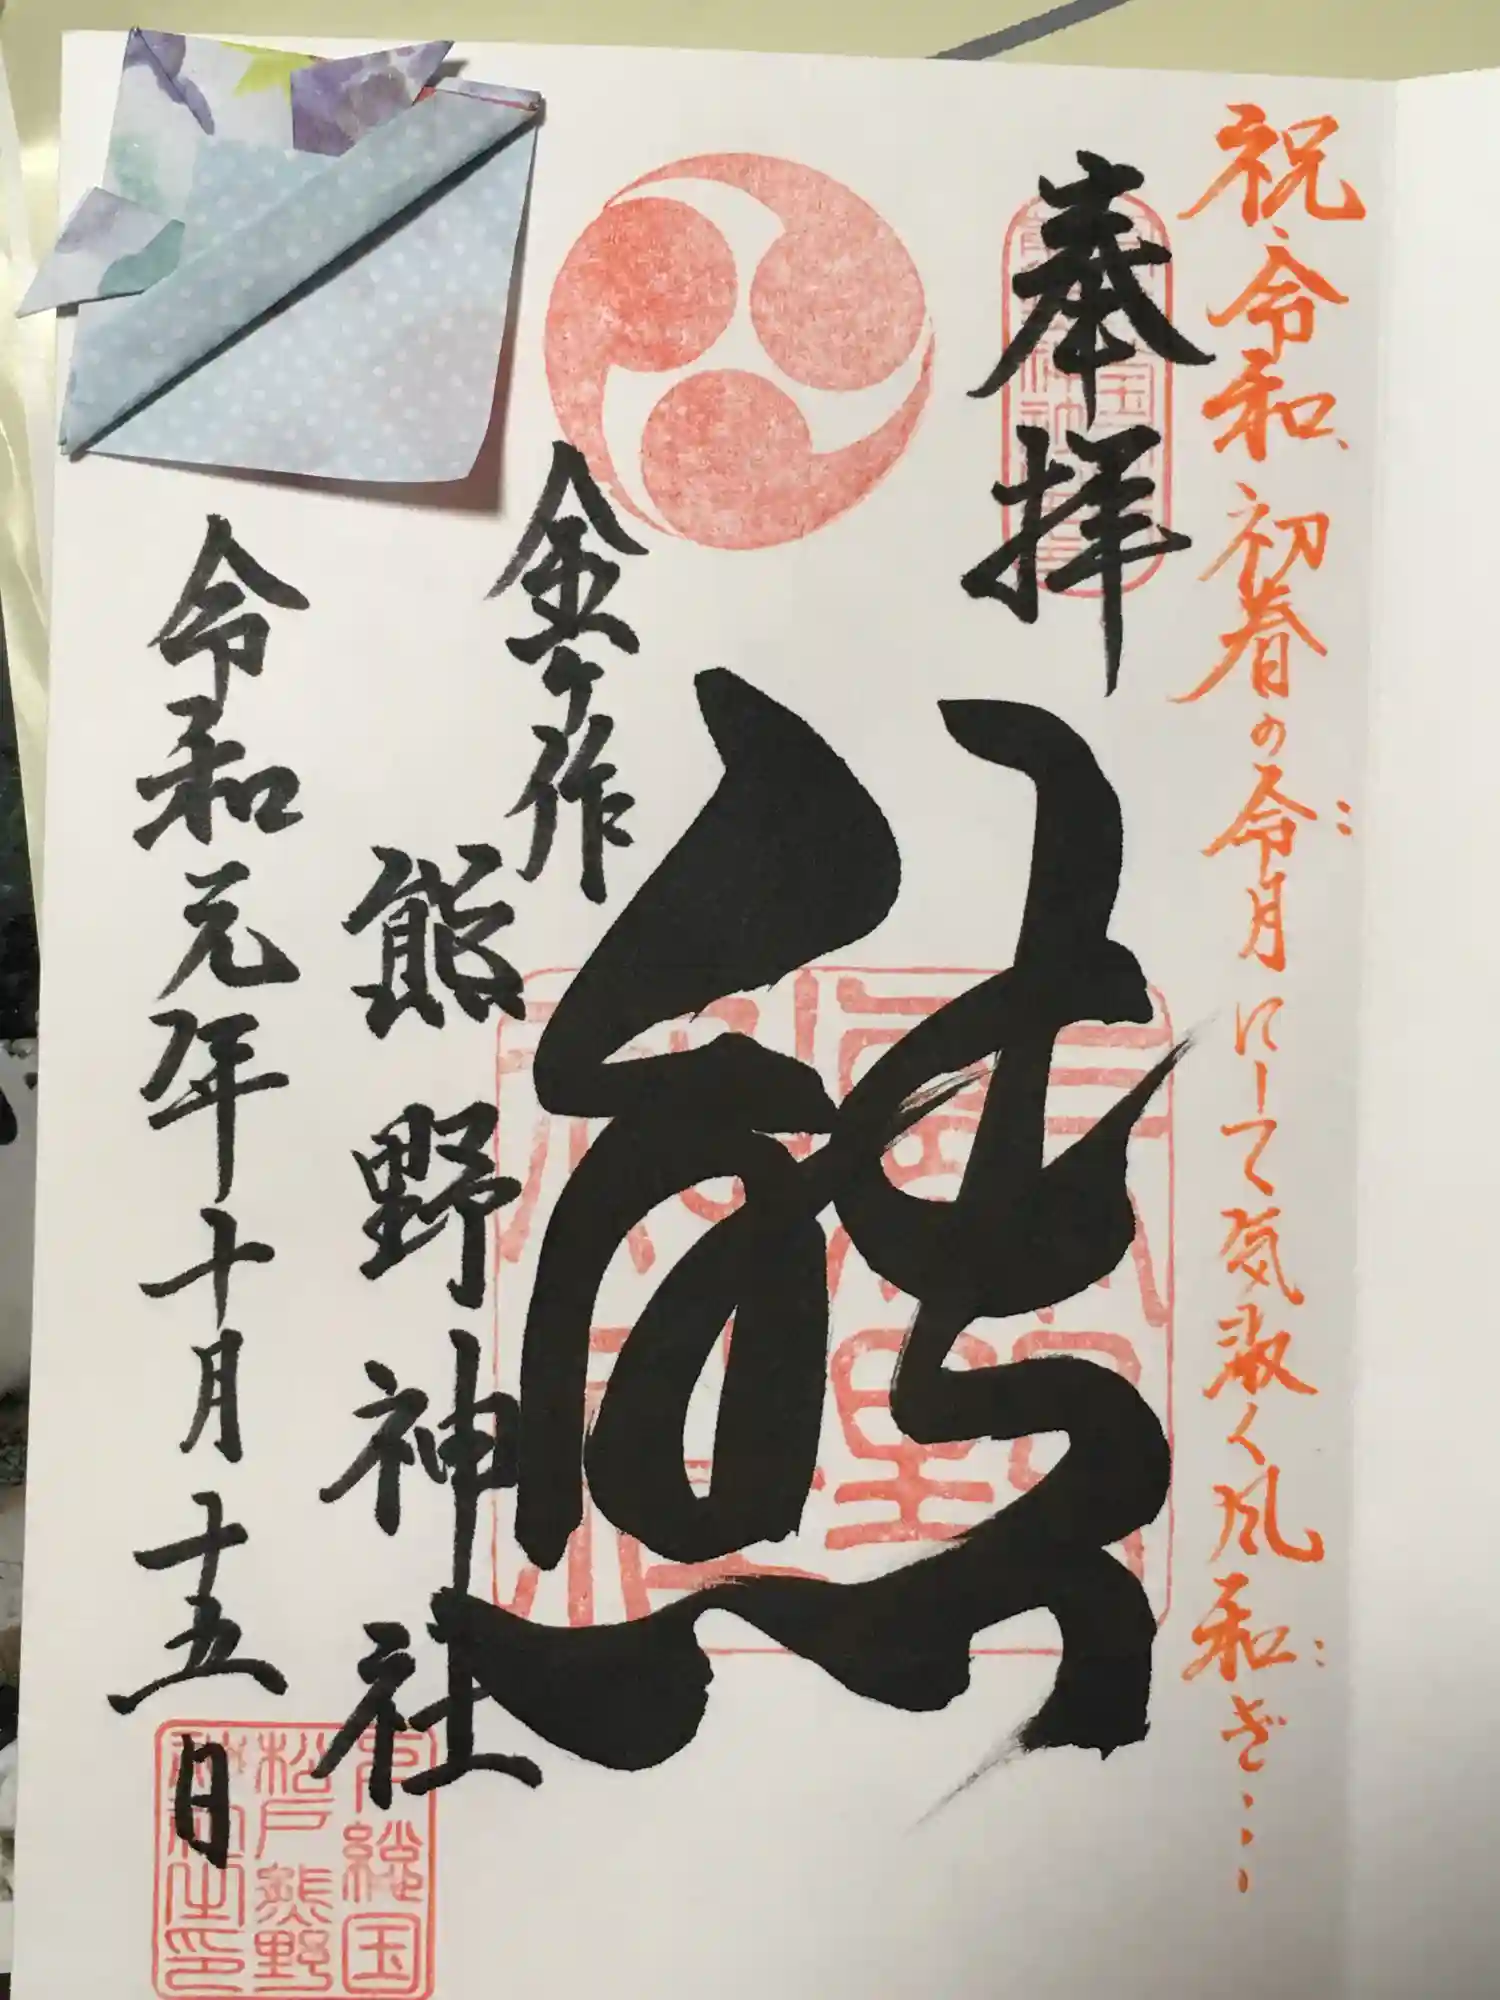 祝 令和 初春の令月にして気淑く風和ぎ・・・
奉拝
熊
金ケ作
熊野神社
令和元年十月十五日
下総国
松戸熊野
神社之印